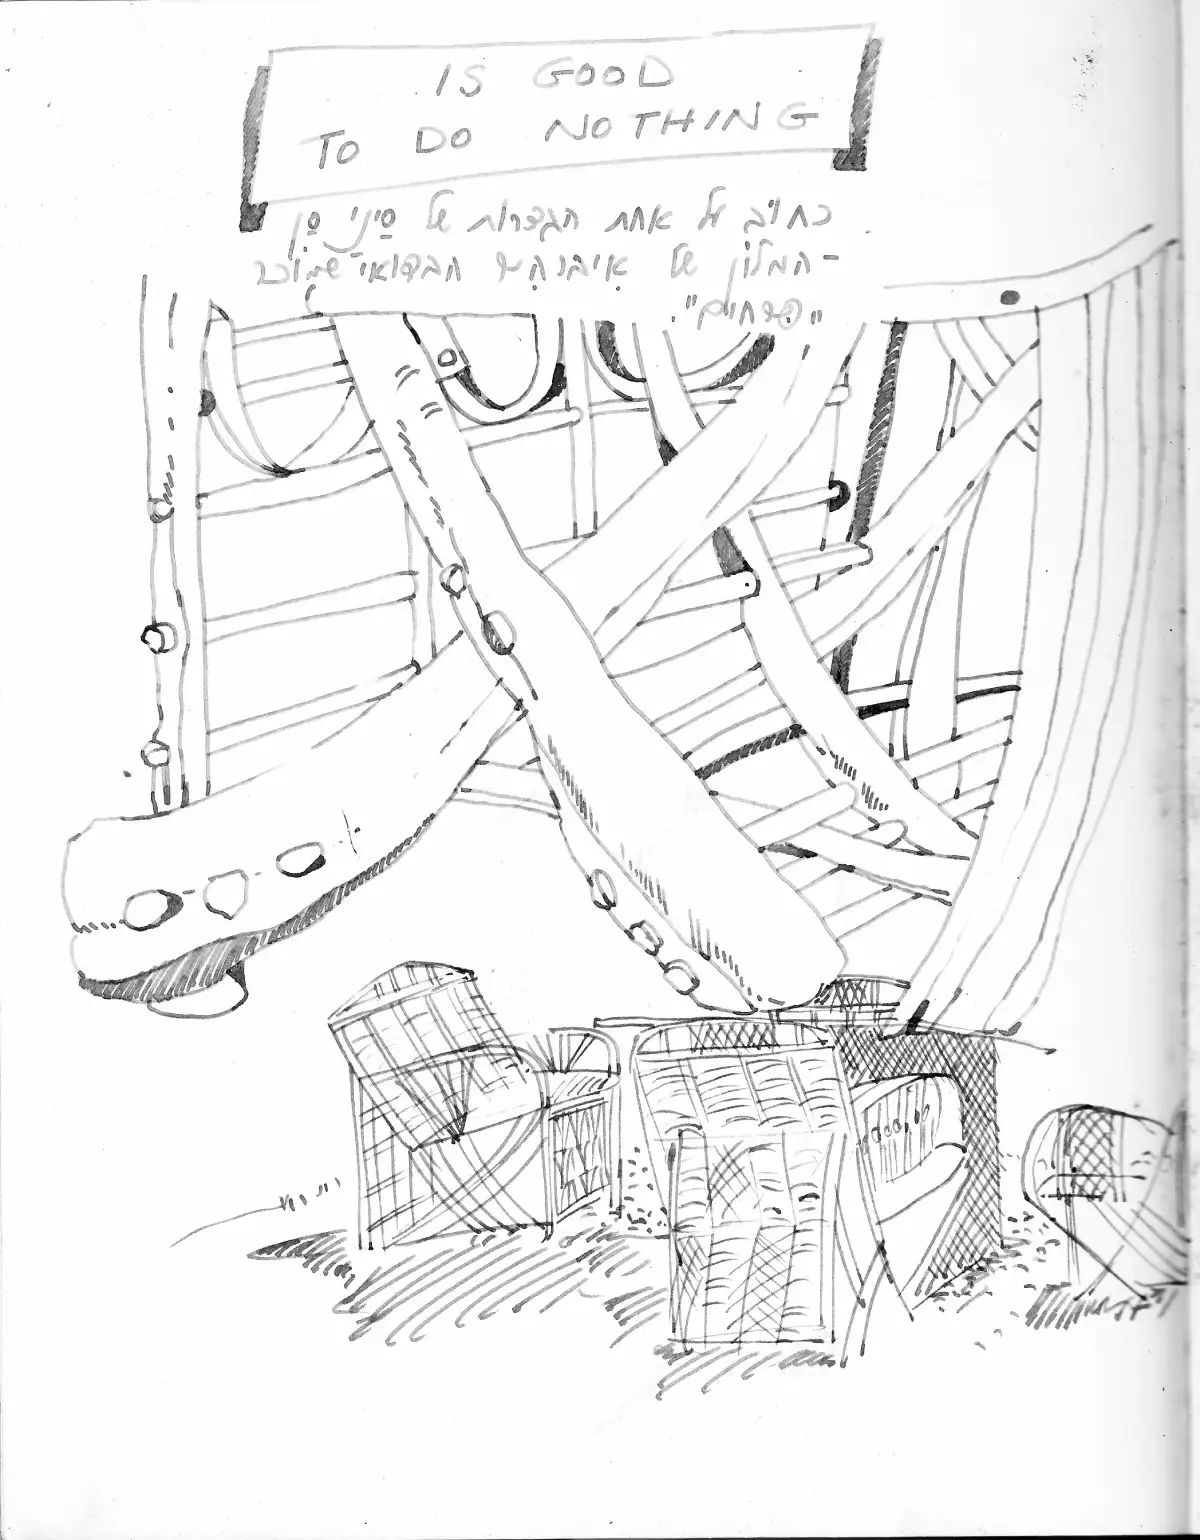 IS GOOD
TO DO NOTHING
כתוב על אחת הגדרות של סיני סן
המלון של איברהים הבדואי שמוכר
"פרחים".